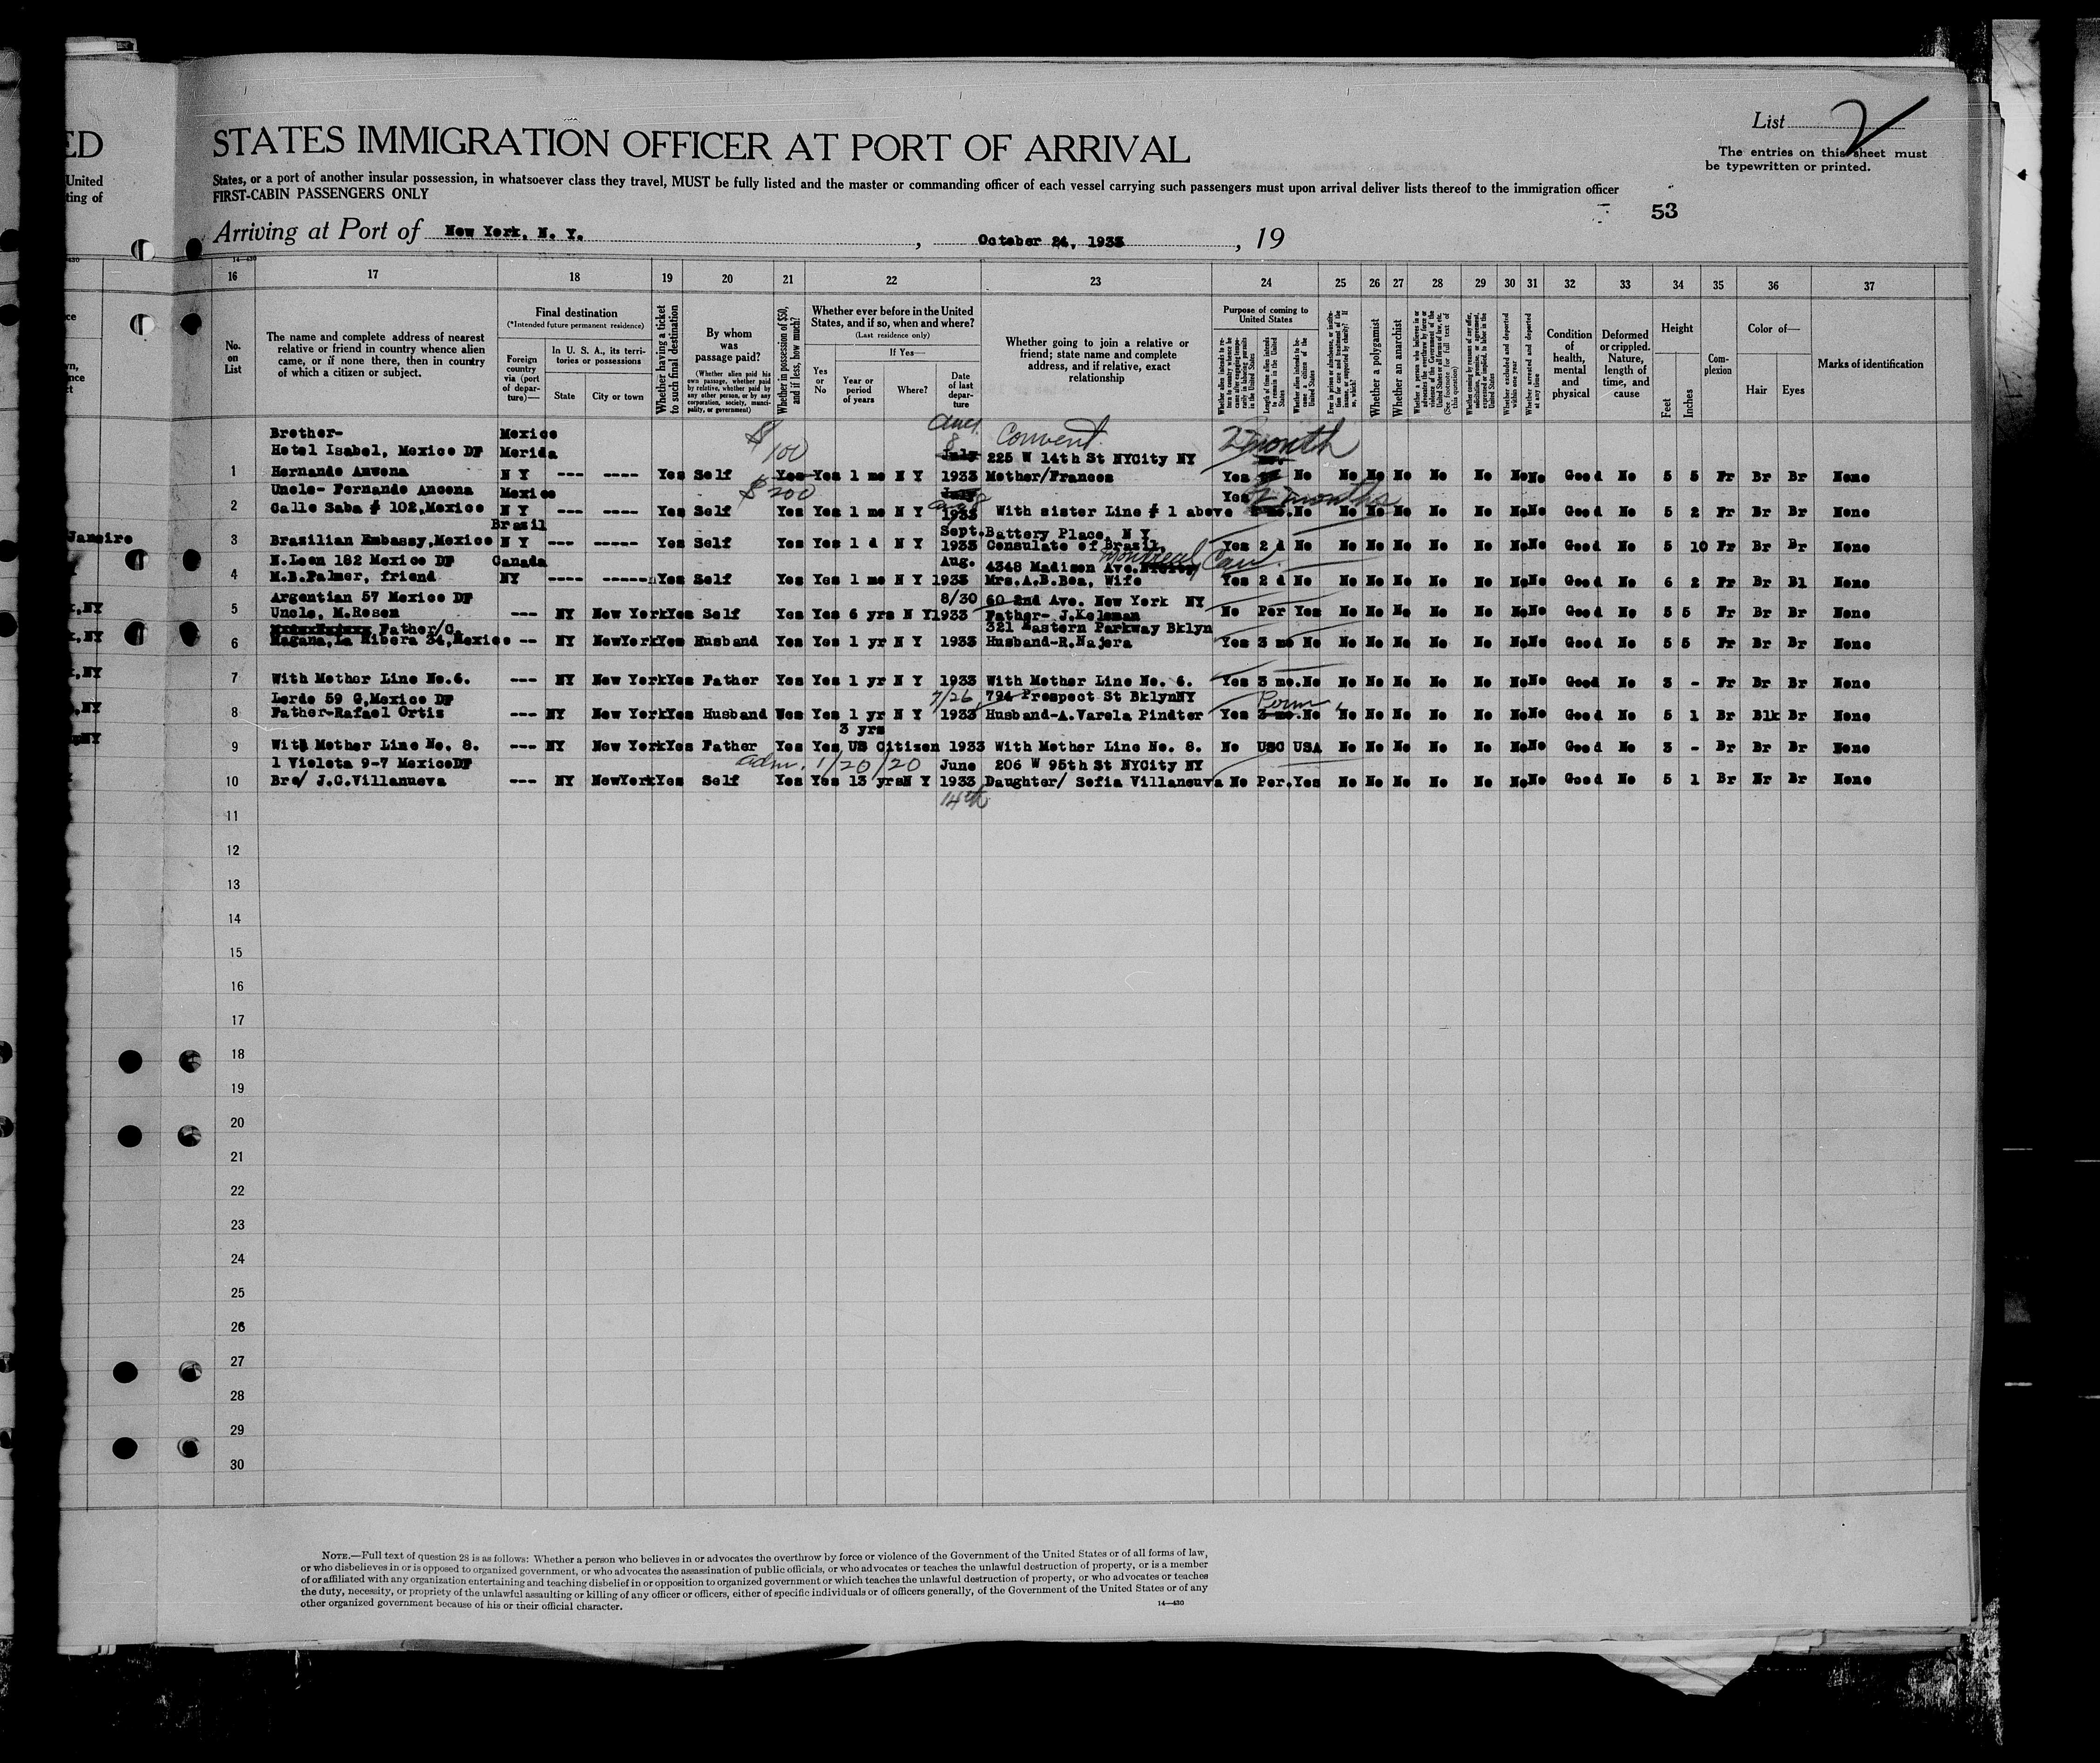 ED
United
ting of
STATES IMMIGRATION OFFICER AT PORT OF ARRIVAL
List 2
The entries on this sheet must
be typewritten or printed.
States, or a port of another insular possession, in whatsoever class they travel, MUST be fully listed and the master or commanding officer of each vessel carrying such passengers must upon arrival deliver lists thereof to the immigration officer
FIRST-CABIN PASSENGERS ONLY
53
Arriving at Port of New York, N. Y. , October 24, 1933 , 19
14-430
16 17 18 19 20 21 22 23 24 25 26 27 28 29 30 31 32 33 34 35 36 37
No. on List
The name and complete address of nearest
relative or friend in country whence alien
came, or if none there, then in country
of which a citizen or subject.
Final destination
(*Intended future permanent residence)
Foreign country via (port of departure)—
In U. S. A., its territories or possessions
State City or town
Whether having a ticket to such final destination
By whom was passage paid?
(Whether alien paid his own passage, whether paid by relative, whether paid by any other person, or by any corporation, society, municipality, or government)
Whether in possession of $50, and if less, how much?
Whether ever before in the United
States, and if so, when and where?
(Last residence only)
If Yes—
Yes or No
Year or period of years
Where?
Date of last departure
Whether going to join a relative or
friend; state name and complete
address, and if relative, exact
relationship
Purpose of coming to United States
Length of time alien intends to remain in the United States
Whether alien intends to become a citizen of the United States
Whether a polygamist
Whether an anarchist
Whether excluded and deported within one year
Whether arrested and deported at any time
Condition of health, mental and physical
Deformed or crippled. Nature, length of time, and cause
Height
Feet Inches
Complexion
Color of—
Hair Eyes
Marks of identification
Brother- Mexico $100 8 Convent 2 month
Hotel Isabel, Mexico DF Merida July 225 W 14th St NYCity NY
1 Hernando Ancona N Y --- ---- Yes Self Yes Yes 1 mo N Y 1933 Mother/Frances Yes No No No No No No No No Good No 5 5 Fr Br Br None
Uncle- Fernando Ancona Mexico $200 July Yes 2 months
2 Calle Saba # 102,Mexico N Y --- ---- Yes Self Yes Yes 1 mo N Y 1933 With sister Line # 1 above No No No No No No No No Good No 5 2 Fr Br Br None
Brazil Sept. Battery Place, N Y
3 Brazilian Embassy,Mexico N Y --- ----- Yes Self Yes Yes 1 d N Y 1933 Consulate of Brazil, Yes 2 d No No No No No No No No Good No 5 10 Fr Br Br None
Janeiro
N.Leon 182 Mexico DF Canada Aug. 4348 Madison Ave. Montreal Can.
4 M.B.Palmer, friend NY ---- ----- Yes Self Yes Yes 1 mo N Y 1933 Mrs.A.B.Bea, Wife Yes 2 d No No No No No No No No Good No 6 2 Fr Br Bl None
Argentian 57 Mexico DF 8/30 60 2nd Ave. New York NY
5 Uncle, M.Rosen --- NY New York Yes Self Yes Yes 6 yrs N Y 1933 Father- J.Kelsman No Per Yes No No No No No No No Good No 5 5 Fr Br Br None
Father/C. 321 Eastern Parkway Bklyn
6 Magana,La Ribera 34,Mexico -- NY NewYork Yes Husband Yes Yes 1 yr N Y 1933 Husband-R.Najera Yes 3 mo No No No No No No No No Good No 5 5 Fr Br Br None
7 With Mother Line No.6. --- NY New York Yes Father Yes Yes 1 yr N Y 1933 With Mother Line No. 6. Yes 3 mo.No No No No No No No No Good No 3 - Fr Br Br None
Lerdo 59 G,Mexico DF 7/26 794 Prospect St BklynNY Perm
8 Father-Rafael Ortiz --- NY New York Yes Husband Yes Yes 1 yr N Y 1933 Husband-A.Varela Pindter Yes 3 mo.No No No No No No No No Good No 5 1 Br Blk Br None
3 yrs
9 With Mother Line No. 8. --- NY New York Yes Father Yes Yes US Citizen 1933 With Mother Line No. 8. No USC USA No No No No No No No Good No 3 - Br Br Br None
1 Violeta 9-7 MexicoDF adm. 1/20/20 June 206 W 95th St NYCity NY
10 Bro/ J.C.Villanueva --- NY NewYork Yes Self Yes Yes 13 yrs N Y 1933 Daughter/ Sofia Villanueva No Per.Yes No No No No No No No Good No 5 1 Br Br Br None
14th
11
12
13
14
15
16
17
18
19
20
21
22
23
24
25
26
27
28
29
30
NOTE.—Full text of question 28 is as follows: Whether a person who believes in or advocates the overthrow by force or violence of the Government of the United States or of all forms of law,
or who disbelieves in or is opposed to organized government, or who advocates the assassination of public officials, or who advocates or teaches the unlawful destruction of property, or is a member
of or affiliated with any organization entertaining and teaching disbelief in or opposition to organized government or which teaches the unlawful destruction of property, or who advocates or teaches
the duty, necessity, or propriety of the unlawful assaulting or killing of any officer or officers, either of specific individuals or of officers generally, of the Government of the United States or of any
other organized government because of his or their official character.
14—430